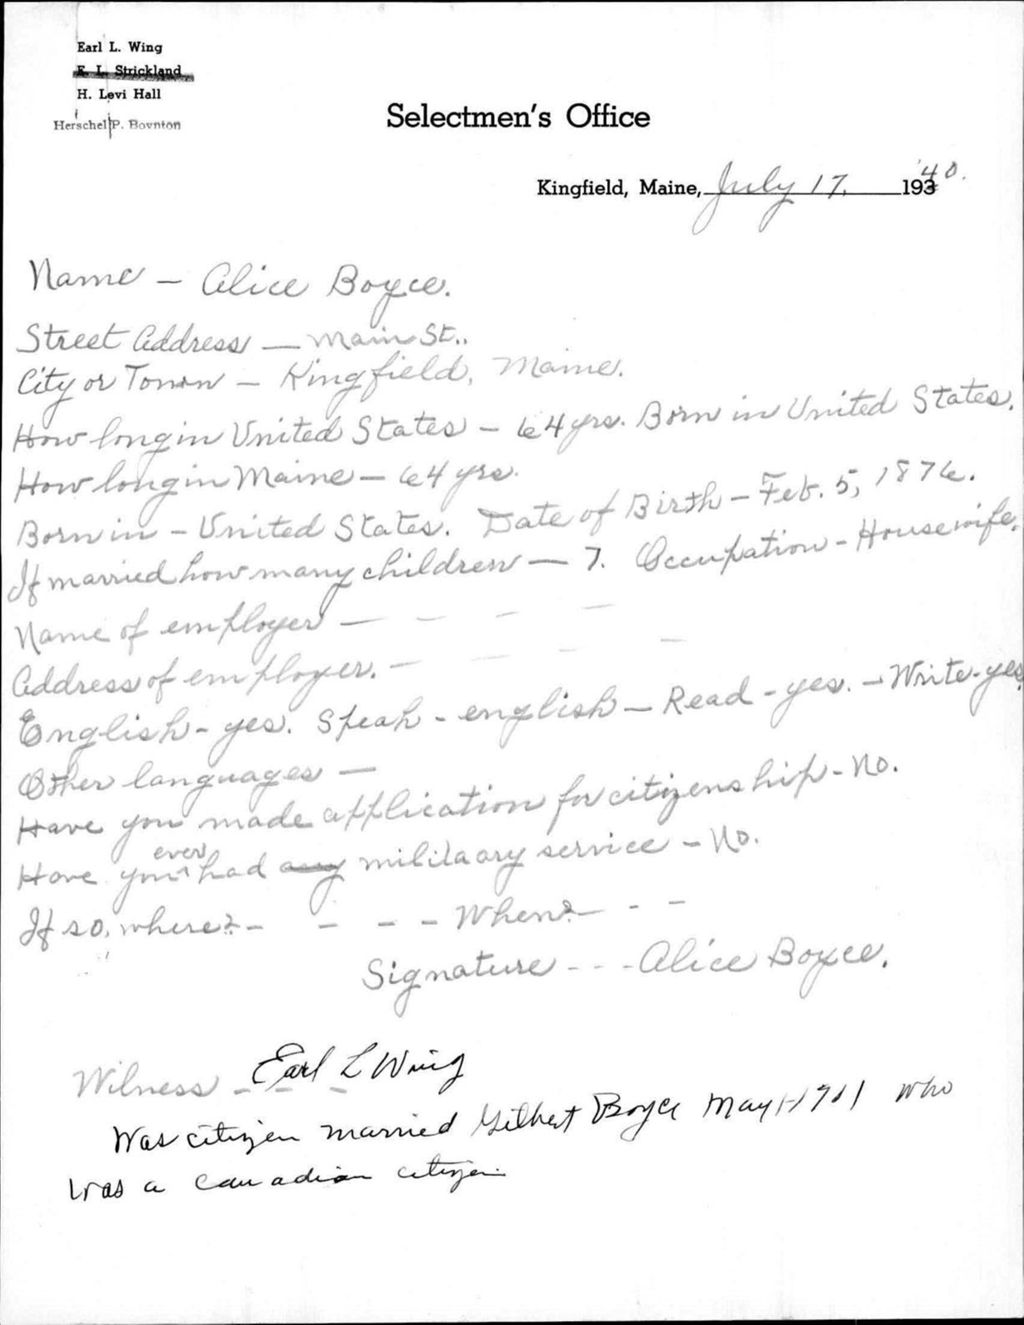 Earl L. Wing
E. L. Strickland
H. Levi Hall
Herschel P. Boynton
Selectmen's Office
Kingfield, Maine, July 17, 193 '40.
Name - Alice Boyce.
Street Address - Main St..
City or Town - Kingfield, Maine.
How long in United States - 64 yrs. Born in United States.
How long in Maine - 64 yrs.
Born in - United States. Date of Birth - Feb. 5, 1876.
If married how many children - 7. Occupation - Housewife.
Name of employer - - - -
Address of employer. - - - -
English - yes. Speak - english - Read - yes. - Write - yes.
Other languages -
Have you made application for citizenship - No.
Have you ever had any militaary service - No.
If so, where? - - - - When? - - -
Signature - - - Alice Boyce.
Witness - - - Earl L Wing
Was citizen married Gilbert Boyce May 1-1911 who
was a Canadian citizen.